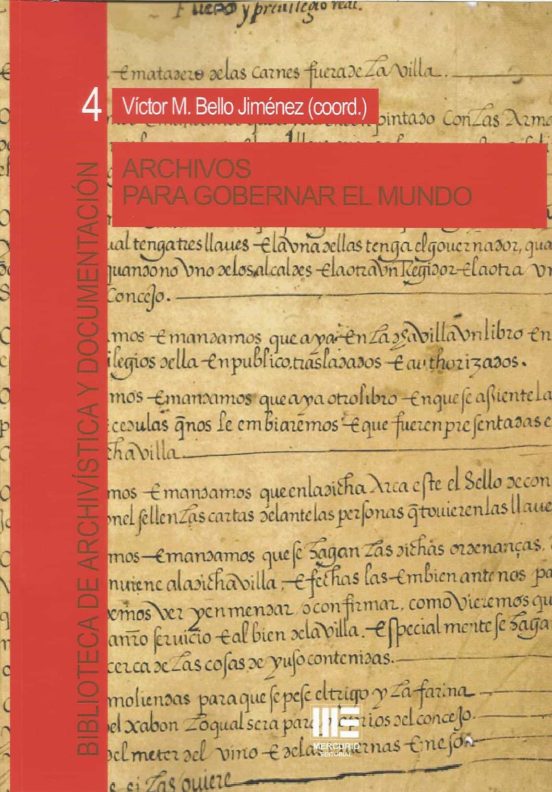 Fuero y previlegio real.
E matadero de las carnes fuera de La villa.
4
Víctor M. Bello Jiménez (coord.)
pintado Con Las Arma
ARCHIVOS
PARA GOBERNAR EL MUNDO
BIBLIOTECA DE ARCHIVÍSTICA Y DOCUMENTACIÓN
ual tenga tres llaues E la vna dellas tenga el gouernador, qua
quando no vno de los alcaldes E la otra vn Regidor E la otra vn
Concejo.
mos E mandamos que aya En La dha villa vn libro en
ilegios della En publico, trasladados E authorizados.
mos E mandamos que aya otro libro En que se assiente la
cedulas q nos le embiaremos E que fueren presentadas e
cha villa
mos E mandamos que en la dicha Arca este el Sello de con
nel sellen Las cartas delante las personas q touieren las llaue
mos E mandamos que se hagan Las dichas ordenanças,
nuiene a la dicha villa, E fechas las Embien ante nos pa
emos ver y enmendar, o confirmar, como Vieremos qu
a nro seruicio E al bien de la Villa. Especial mente se haga
cerca de Las cosas de yuso contenidas.
moliendas para que se pese el trigo y La farina
el xabon Lo qual sera para propios del concejo.
el meter del vino E de las
MERCURIO
EDITORIAL
e si Las quiere